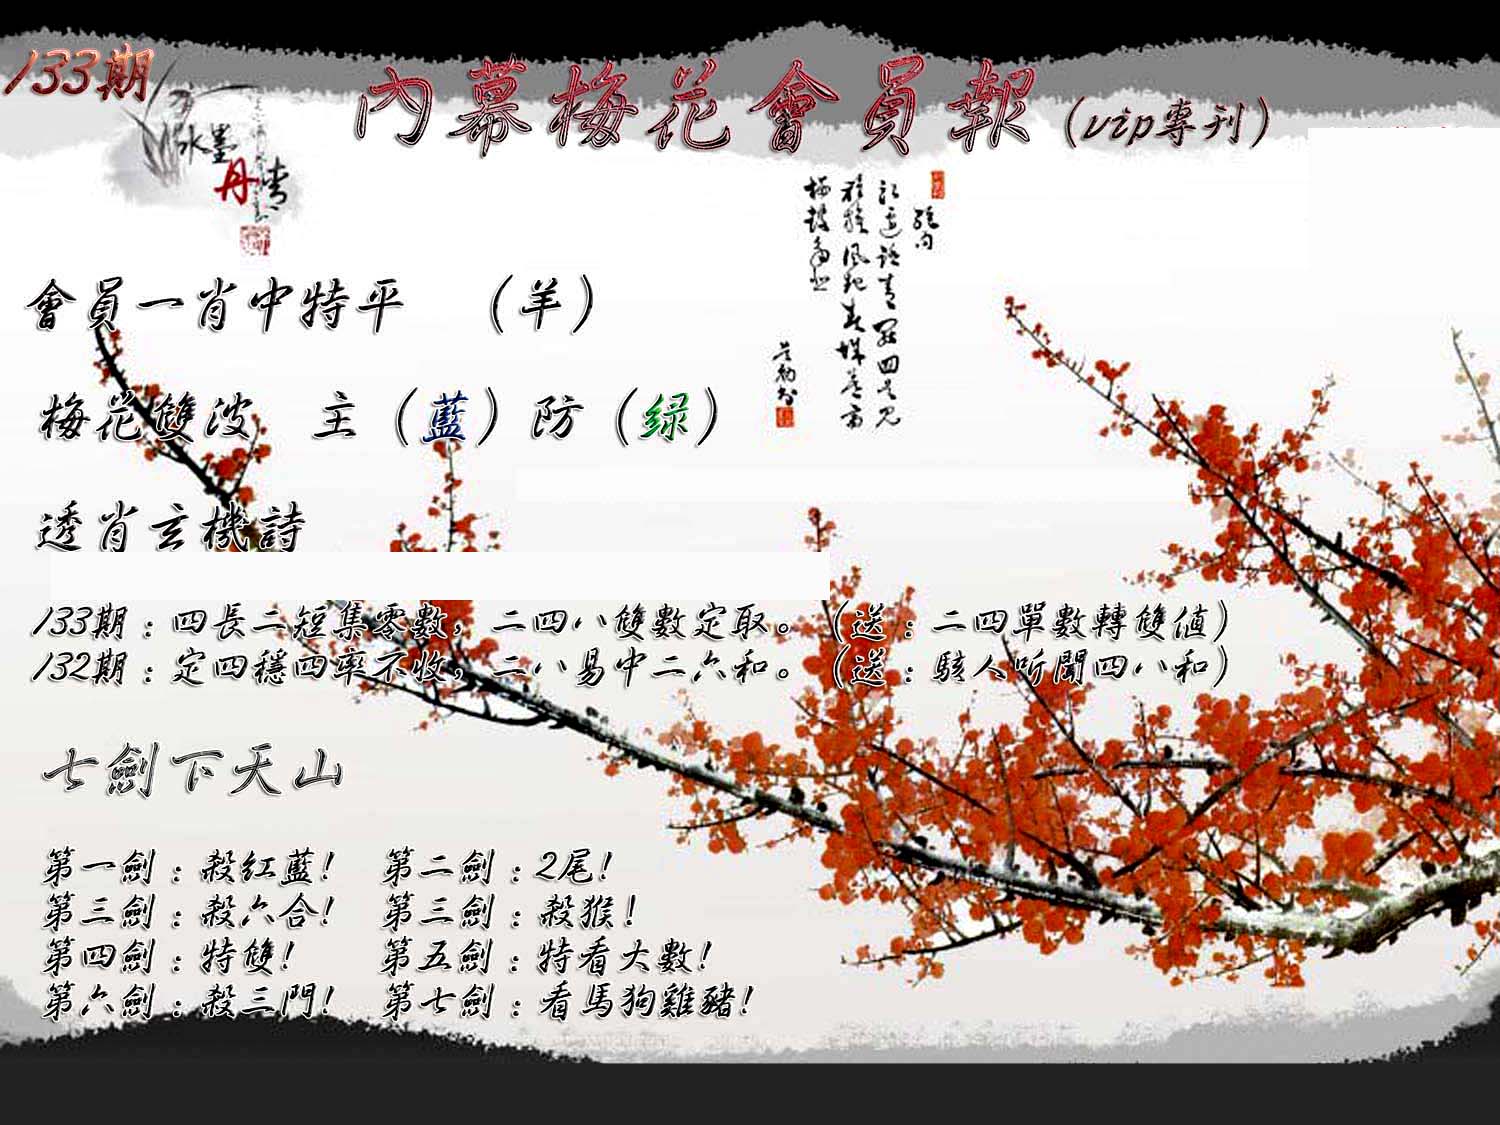 133期
內幕梅花會員報(vip專刊)
水墨
丹青
會員一肖中特平 (羊)
梅花雙波 主(藍)防(绿)
透肖玄機詩
133期:四長二短集零數,二四八雙數定取。(送:二四單數轉雙值)
132期:定四穩四率不收,二八易中二六和。(送:駭人听聞四八和)
七劍下天山
第一劍:殺红藍! 第二劍:2尾!
第三劍:殺六合! 第三劍:殺猴!
第四劍:特雙! 第五劍:特看大數!
第六劍:殺三門! 第七劍:看馬狗雞豬!